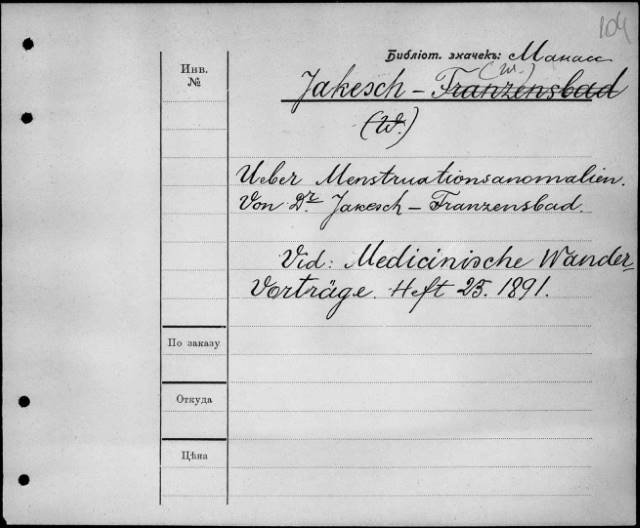 104
Библіот. значекъ: Манасс
Инв.
№
(W.)
Jakesch - Franzensbad
(W.)
Ueber Menstruationsanomalien.
Von Dr. Jakesch - Franzensbad.
Vid: Medicinische Wander-
Vorträge. Heft 25. 1891.
По заказу
Откуда
Цѣна